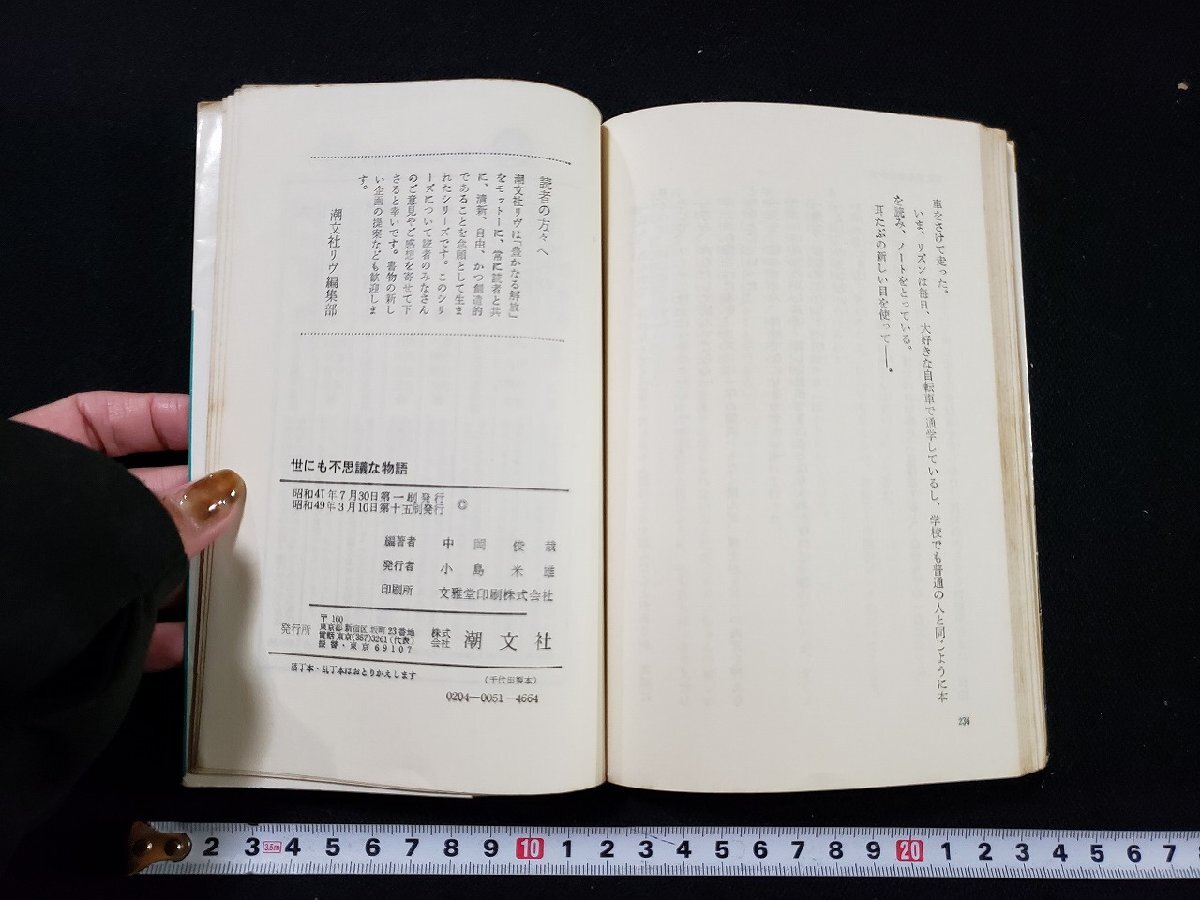 車をさけて走った。
いま、リズンは毎日、大好きな自転車で通学しているし、学校でも普通の人と同じように本
を読み、ノートをとっている。
耳たぶの新しい目を使って――。
234
読者の方々へ
潮文社リヴは「豊かなる解放」
をモットーに、常に読者と共
に、清新、自由、かつ創造的
であることを念願として生ま
れたシリーズです。このシリ
ーズについて読者のみなさん
のご意見やご感想を寄せて下
さると幸いです。書物の新し
い企画の提案なども歓迎しま
す。
潮文社リヴ編集部
世にも不思議な物語
昭和47年7月30日第一刷発行
昭和49年3月10日第十五刷発行 ©
編著者 中岡俊哉
発行者 小島米雄
印刷所 文雅堂印刷株式会社
発行所
〒160
東京都新宿区坂町23番地
電話東京(357)3261(代表)
振替・東京69107
株式会社 潮文社
落丁本・乱丁本はおとりかえします
(千代田製本)
0204―0051―4664
2 3 3.5m 4 5 6 7 8 9 10 1 2 3 4 5 6 7 8 9 20 1 2 3 4 5 6 7